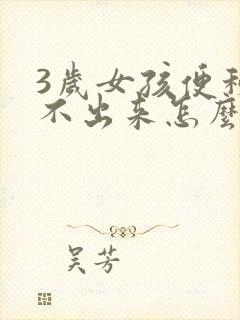 3歲女孩便秘
不出来怎麼
吴芳